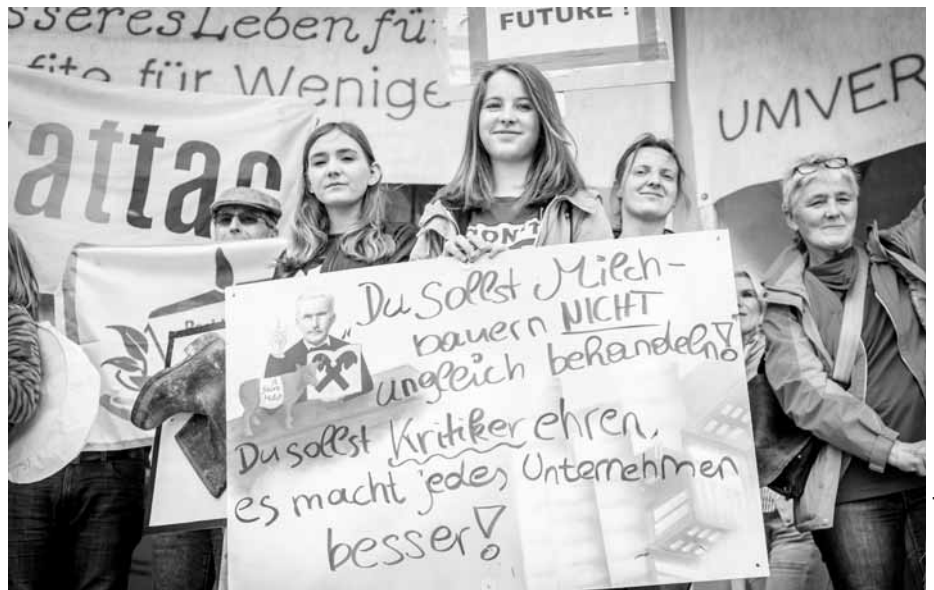 sseres Leben fü
FUTURE !
fite für Wenige
UMVER
attac
ON'T
Du sollst Milch-
bauern NICHT
ungleich behandeln!
Du sollst Kritiker ehren,
es macht jedes Unternehmen
besser!